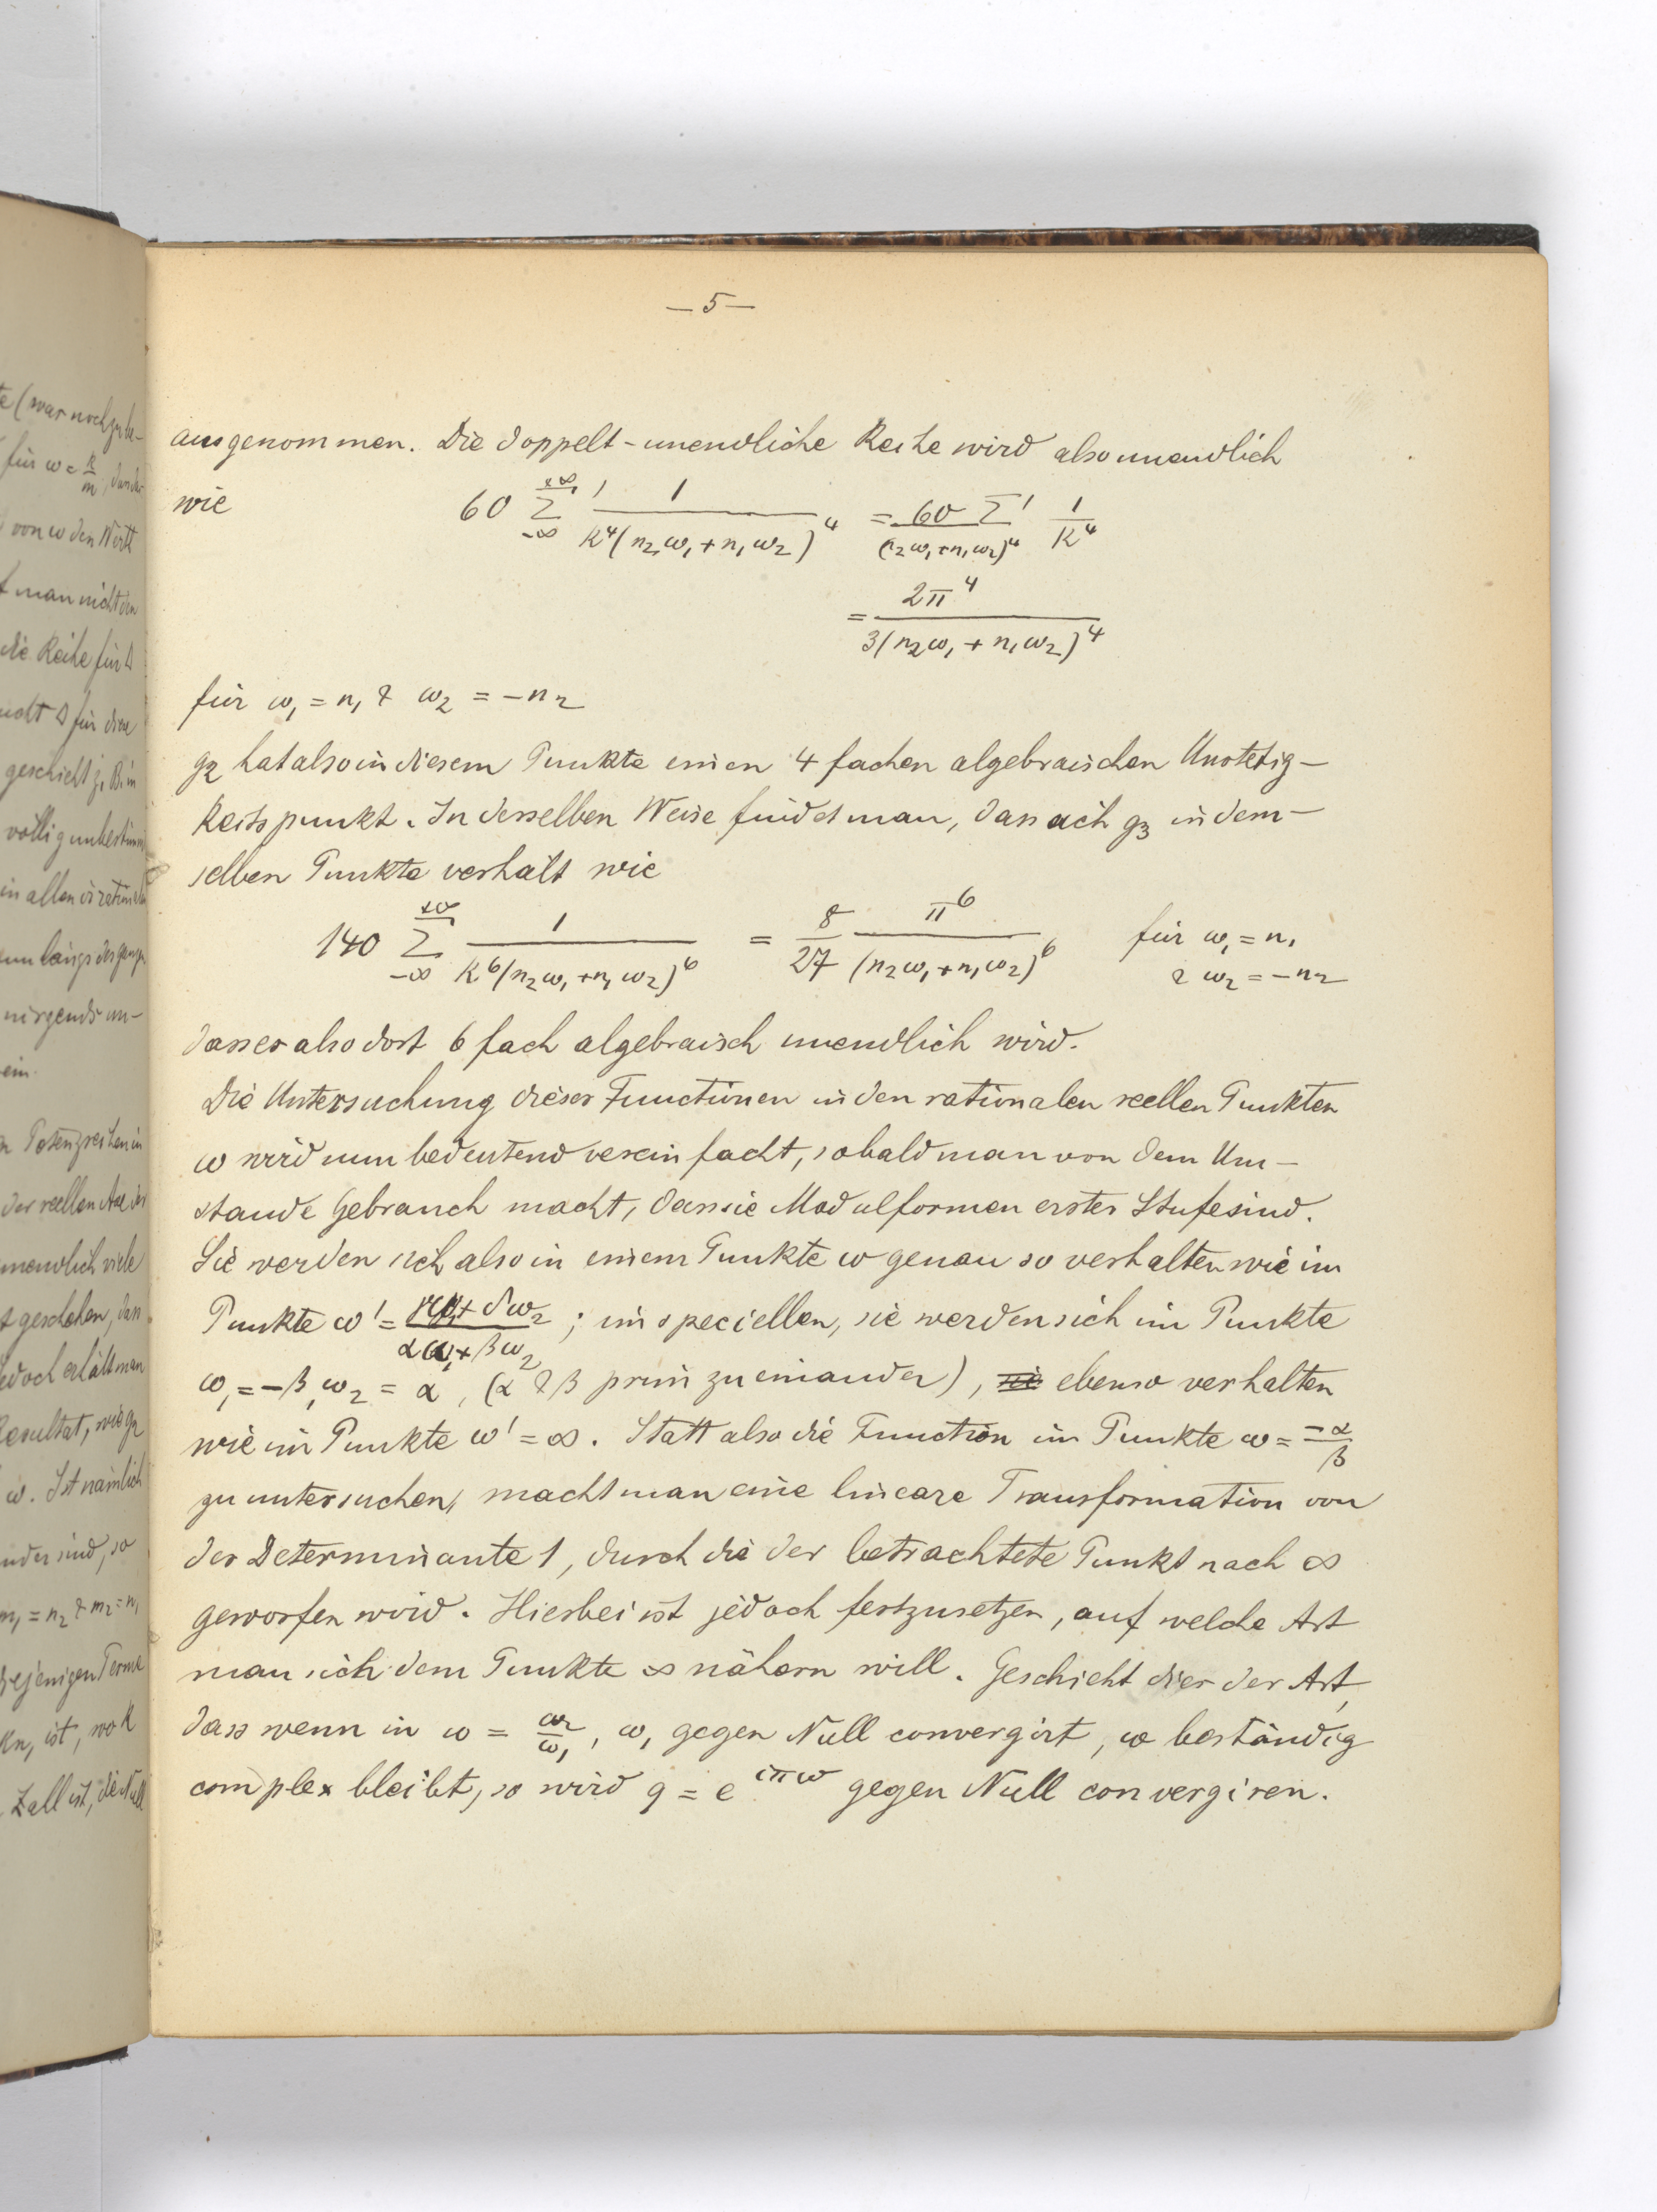 — 5 —
ausgenommen. Die doppelt-unendliche Reihe wird also unendlich
wie 60 Σ' (−∞, +∞) 1 / k⁴(n₂ω₁ + n₁ω₂)⁴ = 60 / (n₂ω₁ + n₁ω₂)⁴ Σ' 1/k⁴
= 2π⁴ / 3(n₂ω₁ + n₁ω₂)⁴
für ω₁ = n₁ & ω₂ = −n₂
g₂ hat also in diesem Punkte einen 4 fachen algebraischen Unstetig-
keitspunkt. In derselben Weise findet man, dass sich g₃ in dem-
selben Punkte verhält wie
140 Σ (−∞, +∞) 1 / k⁶(n₂ω₁ + n₁ω₂)⁶ = 8/27 π⁶ / (n₂ω₁ + n₁ω₂)⁶ für ω₁ = n₁
& ω₂ = −n₂
dass es also dort 6 fach algebraisch unendlich wird.
Die Untersuchung dieser Functionen in den rationalen reellen Punkten
ω wird nun bedeutend vereinfacht, sobald man von dem Um-
stande Gebrauch macht, dass sie Modulformen erster Stufe sind.
Sie werden sich also in einem Punkte ω genau so verhalten wie im
Punkte ω' = (γω₁ + δω₂) / (αω₁ + βω₂) ; im speciellen, sie werden sich im Punkte
ω₁ = −β, ω₂ = α, (α & β prim zu einander), ebenso verhalten
wie im Punkte ω' = ∞. Statt also die Function im Punkte ω = −α/β
zu untersuchen, macht man eine lineare Transformation von
der Determinante 1, durch die der betrachtete Punkt nach ∞
geworfen wird. Hierbei ist jedoch festzusetzen, auf welche Art
man sich dem Punkte ∞ nähern will. Geschieht dies der Art,
dass wenn in ω = ω₂/ω₁, ω₁ gegen Null convergirt, ω beständig
complex bleibt, so wird q = e^{iπω} gegen Null convergiren.